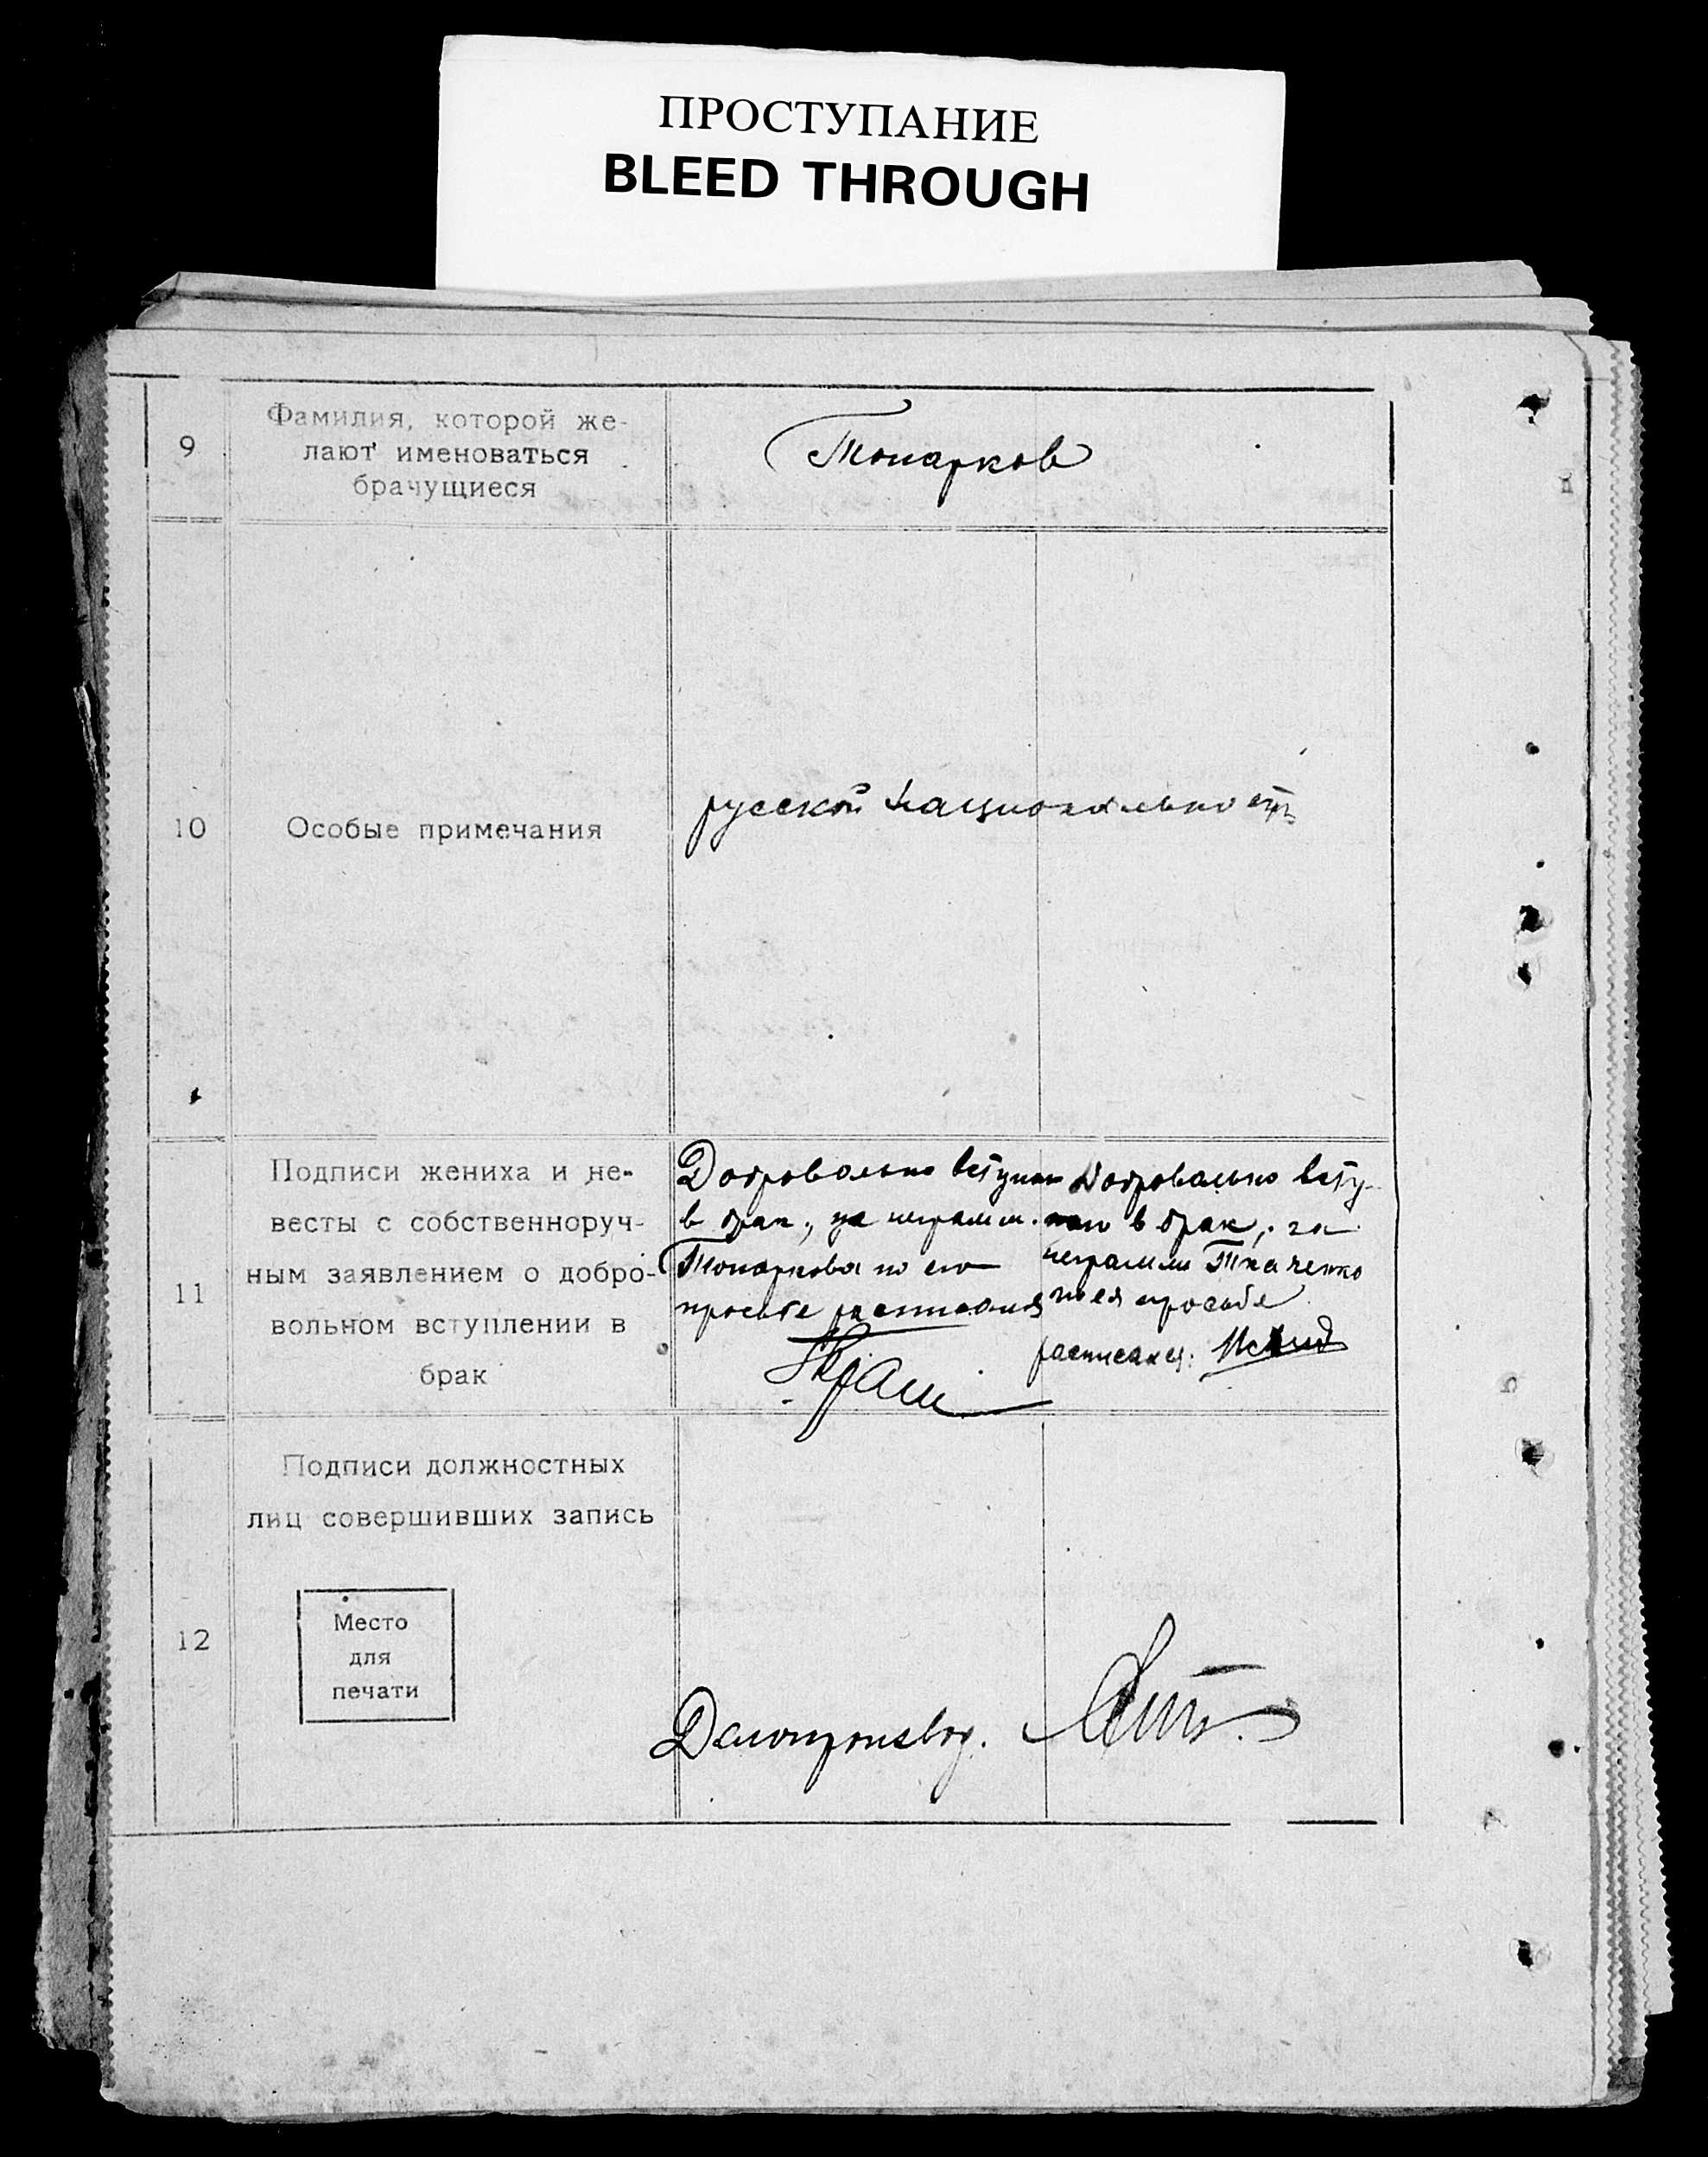 ПРОСТУПАНИЕ
BLEED THROUGH
9
Фамилия, которой же-
лают именоваться
брачущиеся
Топарков
10
Особые примечания
русской национальность
11
Подписи жениха и не-
весты с собственноруч-
ным заявлением о добро-
вольном вступлении в
брак
Добровольно вступаю
в брак, за неграмм.
Топаркова по его
просьбе расписался
Добровольно всту-
паю в брак, за
неграмм Ткаченко
по ея просьбе
расписался:
12
Подписи должностных
лиц совершивших запись
Место
для
печати
Делопроизвод.